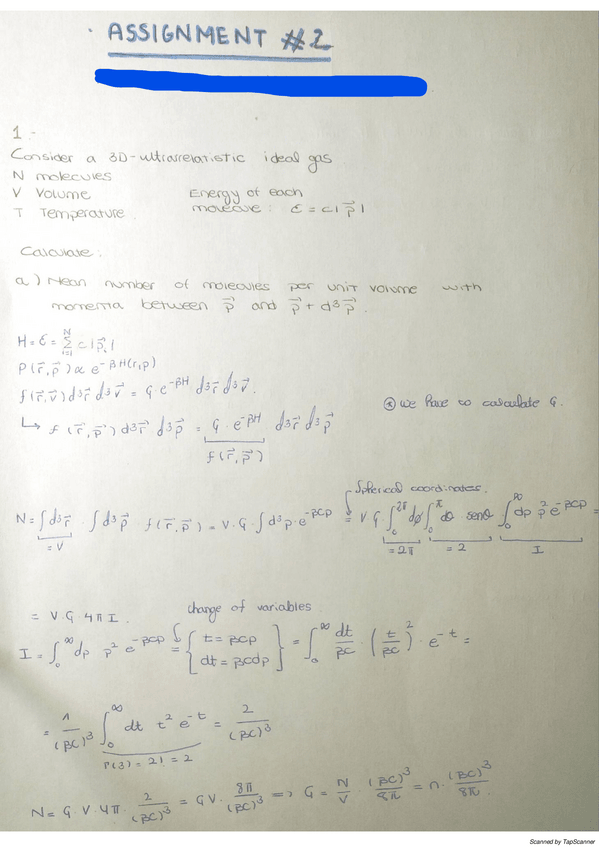 ASSIGNMENT #2
1.-
Consider a 3D-ultrarrelatistic ideal gas
N molecules
V Volume Energy of each
T Temperature. molecule: ε = c|p⃗|
Calculate:
a) Mean number of molecules per unit volume with
momenta between p⃗ and p⃗ + d³p⃗.
H = ε = Σᵢ₌₁ᴺ c|p⃗ᵢ|
P(r⃗, p⃗) ∝ e^{-βH(r,p)}
f(r⃗, v⃗) d³r⃗ d³v⃗ = G e^{-βH} d³r⃗ d³v⃗. ⊛ we have to calculate G.
↳ f(r⃗, p⃗) d³r⃗ d³p⃗ = G · e^{-βH} d³r⃗ d³p⃗
f(r⃗, p⃗)
Spherical coordinates.
N = ∫d³r⃗ · ∫d³p⃗ f(r⃗, p⃗) = V · G · ∫d³p · e^{-βcp} = V G ∫₀^{2π} dφ ∫₀^π dθ senθ ∫₀^∞ dp p² e^{-βcp} =
= V = 2π = 2 I
= V · G · 4π I. change of variables
I = ∫₀^∞ dp p² e^{-βcp} = { t = βcp dt = βcdp } = ∫₀^∞ dt/βc · (t/βc)² · e^{-t} =
= 1/(βc)³ ∫₀^∞ dt t² e^{-t} = 2/(βc)³
Γ(3) = 2! = 2
N = G · V · 4π · 2/(βc)³ = GV · 8π/(βc)³ => G = N/V · (βc)³/8π = n · (βc)³/8π.
Scanned by TapScanner